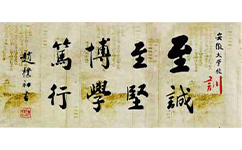 安徽大学校训
至诚
至坚
博学
篤行
趙樸初書